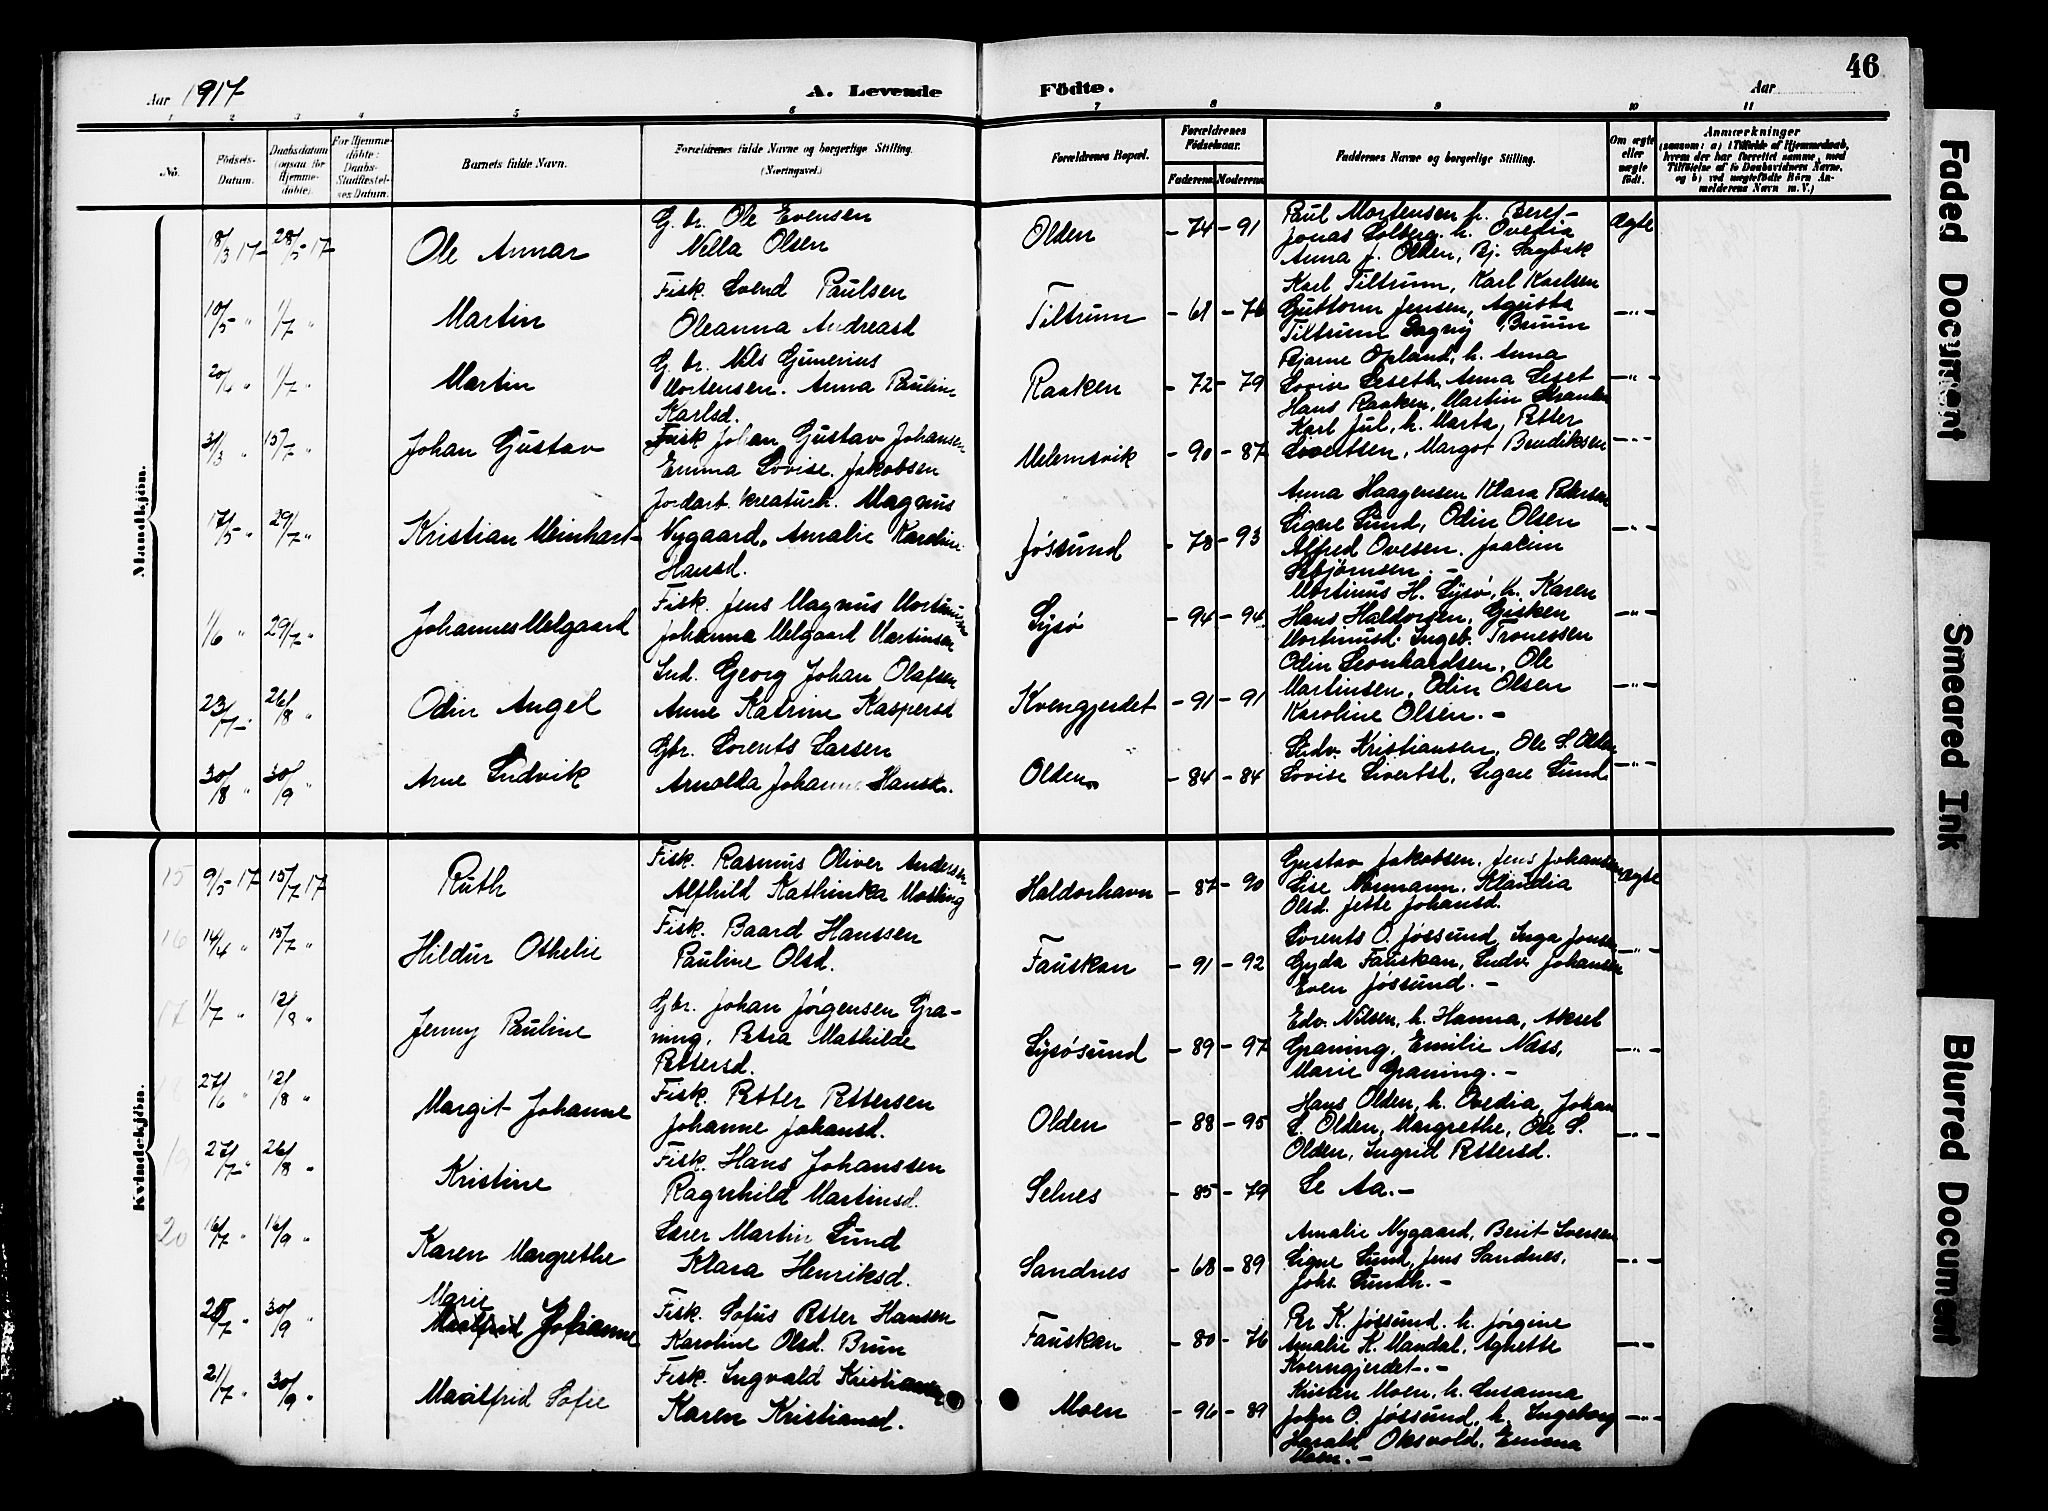 46
Aar 1917
A. Levende Födte.
Aar
1 2 3 4 5 6 7 8 9 10 11
No.
Födsels-Datum.
Daabsdatum (ogsaa for Hjemme-döbte).
For Hjemme-döbte: Daabs-Stadfæstel-ses Datum.
Barnets fulde Navn.
Forældrenes fulde Navne og borgerlige Stilling. (Næringsvei.)
Forældrenes Bopæl.
Forældrenes Födselsaar.
Faderens. Moderens.
Faddernes Navne og borgerlige Stilling.
Om ægte eller uægte födt.
Anmærkninger
(saasom: a) i Tilfælde af Hjemmedaab, hvem der har forrettet samme, med Tilføielse af to Daabsvidners Navne, og b) ved uægtefödte Börn An-melderens Navn m. V.)
Mandkjön.
18/3 17 28/5 17 Ole Annar
G. br. Ole Evensen
Nilla Olsen
Olden - 74 - 91
Paul Mortensen h. Beref-
Jonas Solberg. h. Ovedia
Anna J. Olden, Bj. Sagbak
Ægte
10/5 " 1/7 " Martin
Fisk. Svend Paulsen
Oleanna Andreasd
Tiltrum - 61 - 76
Karl Tiltrum, Karl Karlsen
Guttorm Jensen, Agusta
Tiltrum Dagny Bruun
-"-
20/4 " 1/7 " Martin
G. br. Nils Gunerius
Mortensen. Anna Pauline
Karlsd.
Raaken - 72 - 79
Bjarne Opland, h. Anna
Lovise Leseth, Anna Leset
Hans Raaken, Martin
-"-
31/3 " 15/7 " Johan Gustav
Fisk Johan Gustav Johansen
Emma Lovise Jakobsen
Melemsvik - 90 - 87
Karl Jul, h. Marta, Petter
Sivertsen, Margot Bendiksen
-"-
17/5 " 29/7 " Kristian Meinhart
Jordarb. kreaturh. Magnus
Nygaard, Amalie Karoline
Hansd.
Jøssund - 78 - 93
Anna Haagensen Klara Petersen
Signe Sund, Odin Olsen
Alfred Ovesen. Joakim
-"-
1/6 " 29/7 " Johannes Melgaard
Fisk. Jens Magnus Mortinusen
Johanna Melgaard Martinsen
Lysø - 94 - 94
Mortinus H. Lysø, h. Karen
Hans Haldorsen, Gisken
Mortinusd. Ingeb. Tronessen
-"-
23/7 " 26/8 " Odin Angel
Ind. Georg Johan Olafsen
Anne Katrine Kaspersd
Kvengjerdet - 91 - 91
Odin Leonhardsen, Ole
Martinsen, Odin Olsen
Karoline Olsen. -
-"-
30/8 " 30/9 " Arne Ludvik
Gbr. Lorents Larsen
Arnolda Johanne Hansd.
Olden - 84 - 84
Ludv. Kristiansen, Ole S. Olden
Lovise Sivertsd, Signe Sund
-"-
Kvindekjön.
15 9/5 17 15/7 17 Ruth
Fisk. Rasmus Oliver Andersen
Alfhild Kathinka Mølling
Haldorhavn - 87 - 90
Gustav Jakobsen, Jens Johansen
Lise Normann. Klaudia
Olsd. Jette Johansd.
Ægte
16 14/4 " 15/7 " Hildur Othelie
Fisk. Baard Hanssen
Pauline Olsd.
Fauskan - 91 - 92
Lorents O. Jøssund, Inga Jonsen
Gyda Fauskan, Ludv. Johansen
Even Jøssund. -
-"-
17 1/7 " 12/8 " Jenny Pauline
Gbr. Johan Jørgensen Gra-
ning, Petra Mathilde
Pettersd.
Lysøsund - 89 - 97
Edv. Nilsen, h. Hanna, Aksel
Graning, Emilie Næss,
Marie Graning. -
-"-
18 27/6 " 12/8 " Margit Johanne
Fisk. Petter Pettersen
Johanne Johansd.
Olden - 88 - 95
Hans Olden, h. Ovedia, Johan
L. Olden, Margrethe, Ole S.
Olden, Ingrid Pettersd.
-"-
19 27/7 " 26/8 " Kristine
Fisk. Hans Johanssen
Ragnhild Martinsd.
Selnes - 85 - 79
Se Aa. -
20 16/7 " 16/9 " Karen Margrethe
Lærer Martin Sund
Klara Henriksd.
Sandnes - 68 - 89
Amalie Nygaard, Berit Svensen
Signe Sund, Jens Sandnes,
Johs. Sundh. -
-"-
25/7 " 30/9 " Marie
Johanne
Fisk. Sofus Petter Hansen
Karoline Olsd. Brun
Fauskan - 80 - 76
Per K. Jøssund. h. Jørgine
Amalie K. Mandal. Agnette
Kverngjerdet. -
-"-
21/7 " 30/9 " Maalfrid Sofie
Fisk. Ingvald Kristiansen
Karen Kristiansd.
Moen - 96 - 89
Kristen Moen, h. Susanna
John O. Jøssund, h. Ingeborg
Harald Oksvold. Emma
Moen. -
-"-
Faded Document
Smeared Ink
Blurred Document